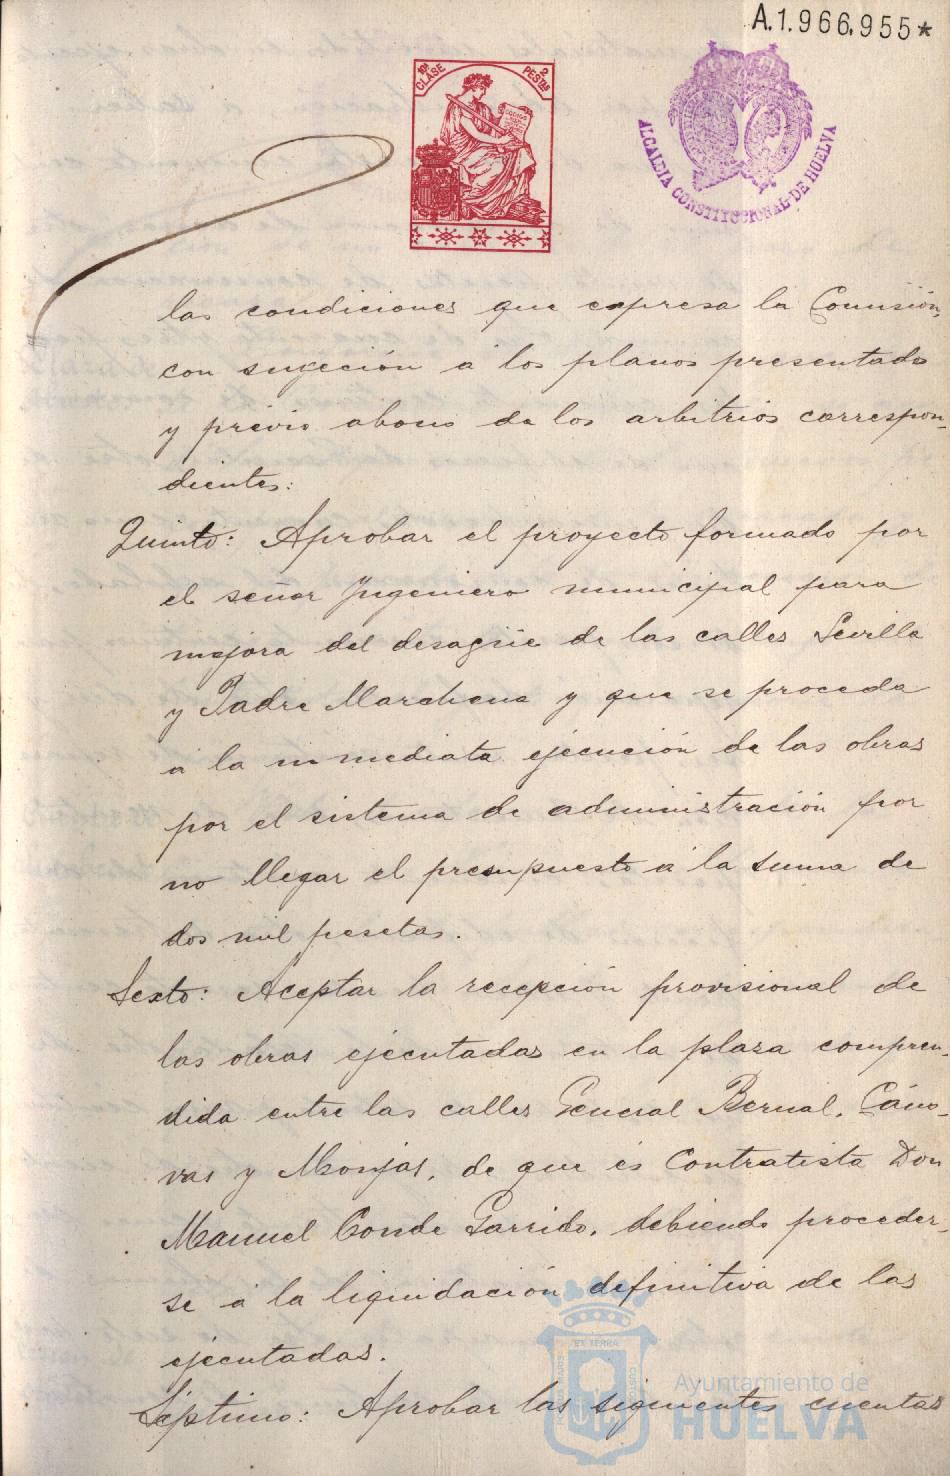 A.1.966.955*
10ª CLASE
2 PESTAS
ALCALDIA CONSTITUCIONAL DE HUELVA
las condiciones que expresa la Comisión,
con sugeción á los planos presentados
y previo abono de los arbitrios correspon-
dientes:
Quinto: Aprobar el proyecto formado por
el señor Ingeniero municipal para
mejora del desagüe de las calles Sevilla
y Padre Marchena y que se proceda
a la inmediata ejecución de las obras
por el sistema de administración por
no llegar el presupuesto á la suma de
dos mil pesetas.
Sexto: Aceptar la recepción provisional de
las obras ejecutadas en la plaza compren-
dida entre las calles General Bernal, Cáno-
vas y Monjas, de que es Contratista Don
Manuel Conde Garrido, debiendo proceder-
se á la liquidación definitiva de las
ejecutadas.
Séptimo: Aprobar las siguientes cuentas
Ayuntamiento de
HUELVA